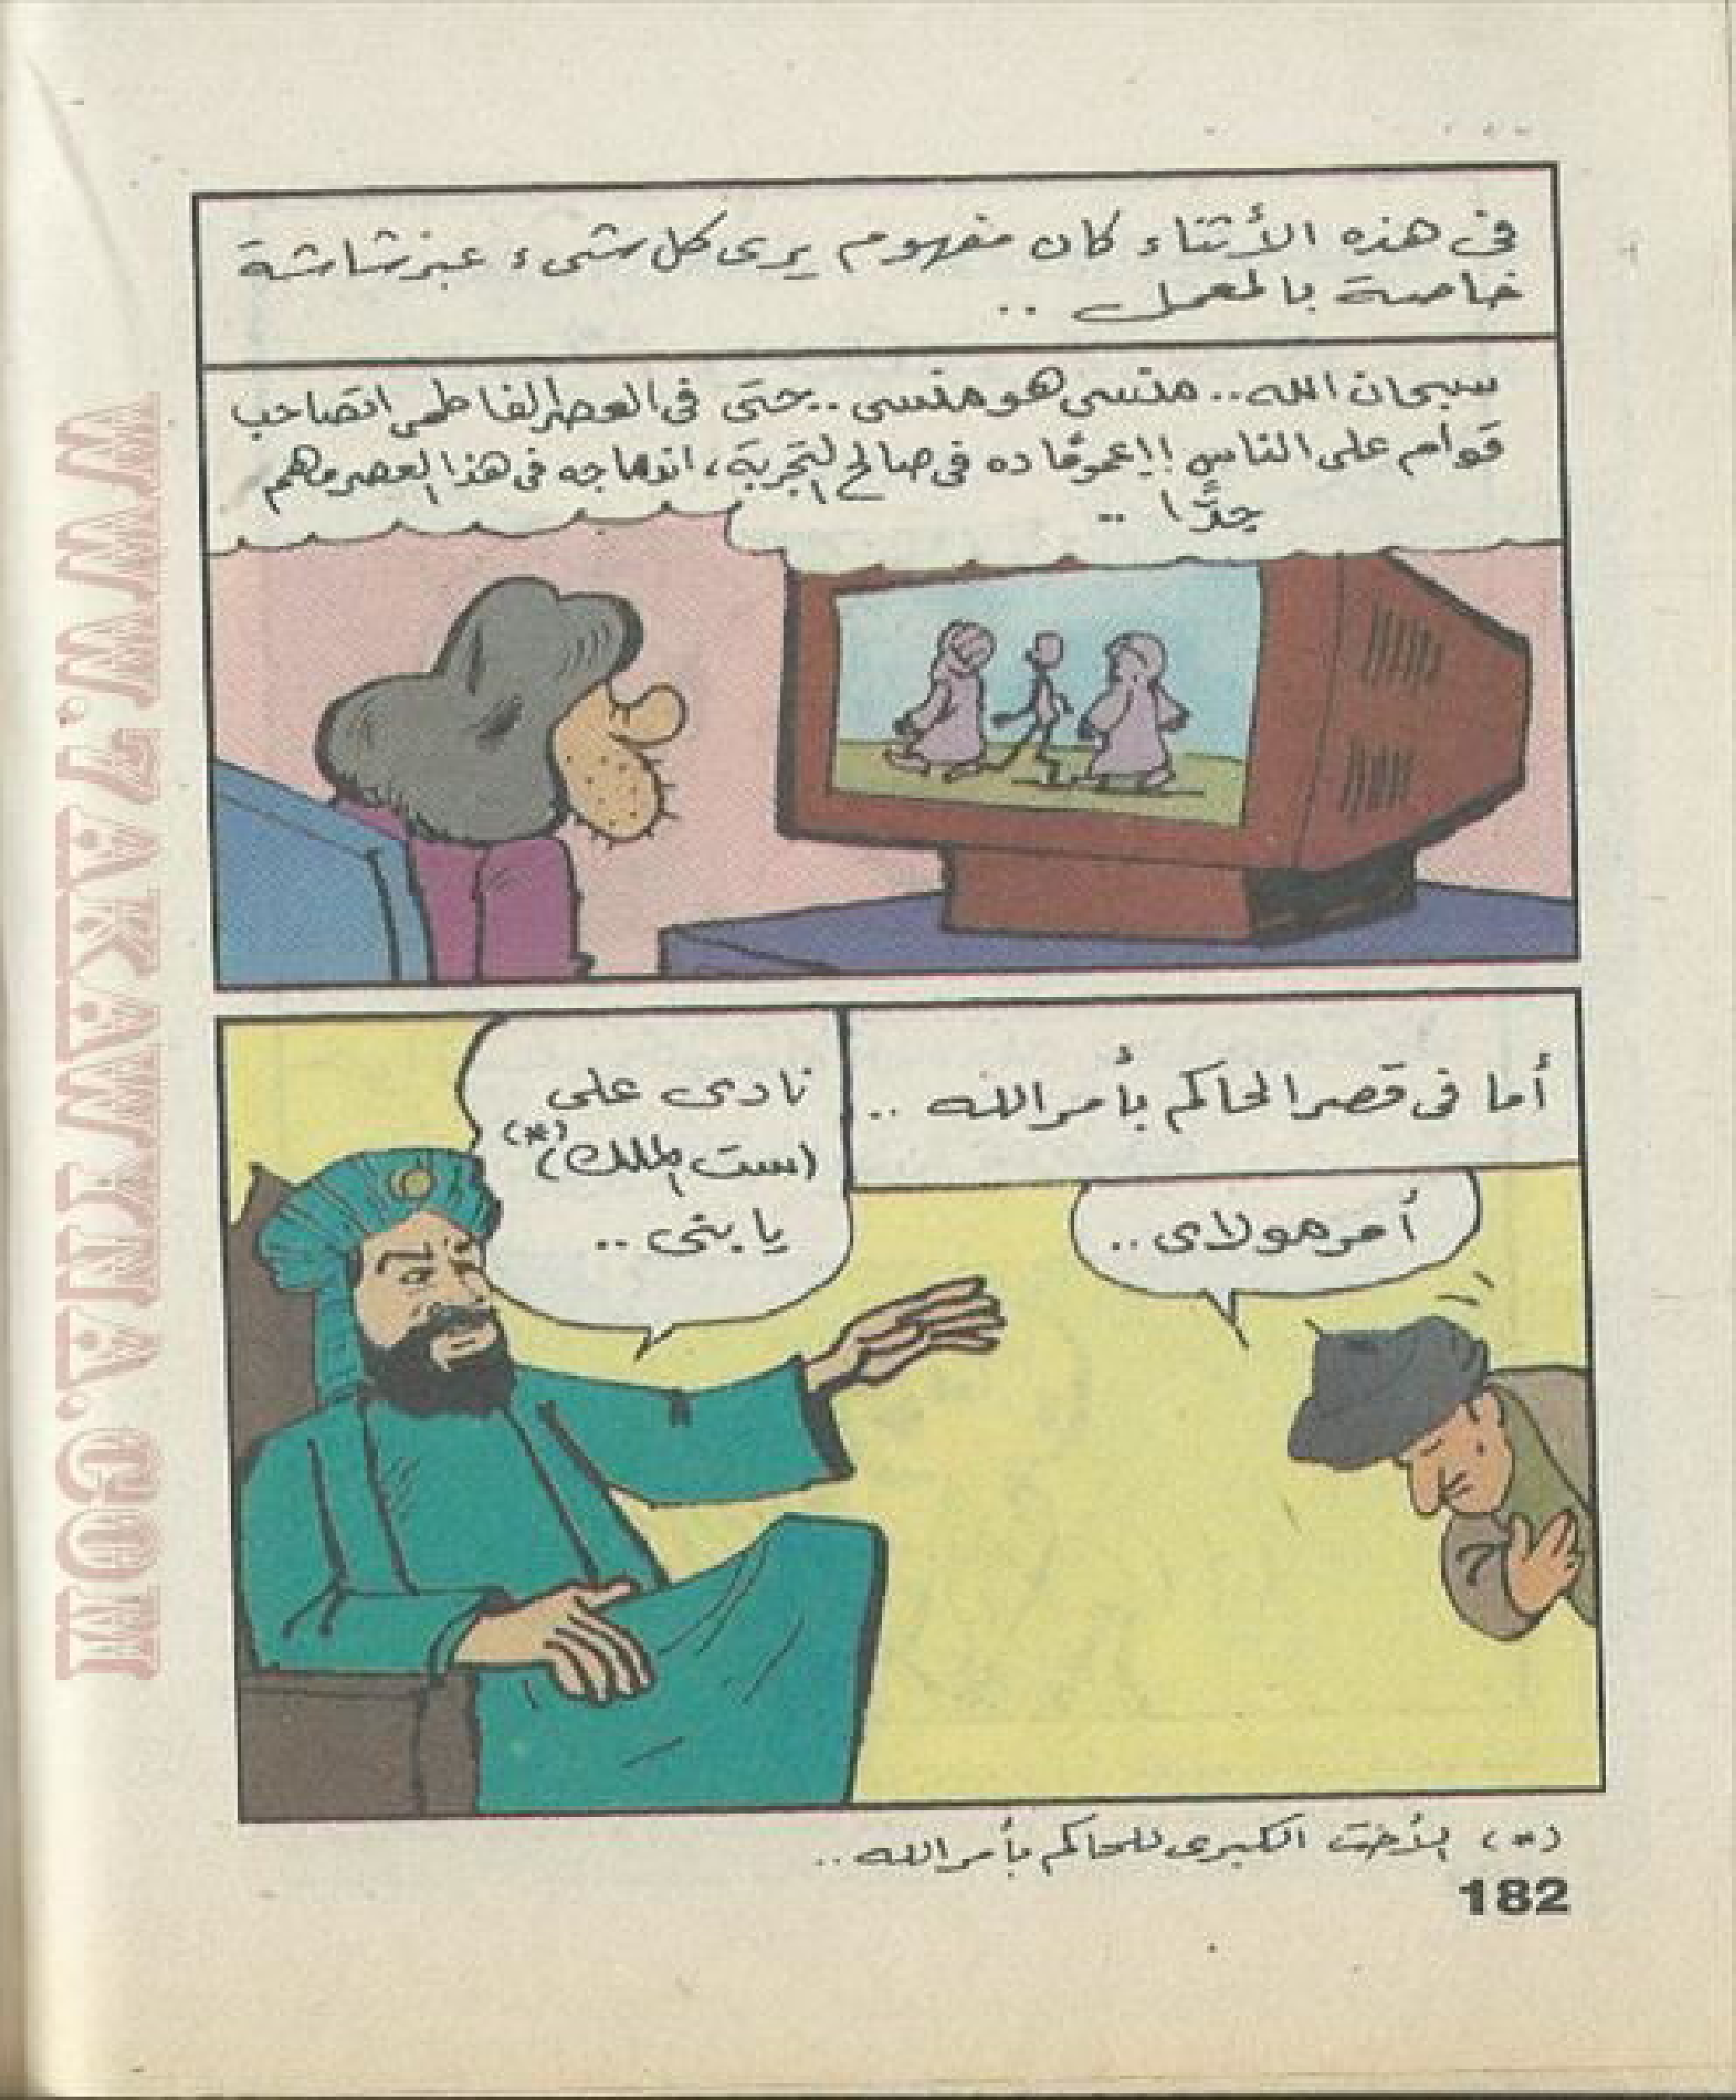 فى هذه الأثناء كان مفهوم يرى كل شىء عبر شاشة
خاصة بالمعمل ..
سبحان الله .. منسى هو منسى .. حتى فى العصر الفاطمى اتصاحب
قوام على الناس !! عمومًا ده فى صالح التجربة، اندماجه فى هذا العصر مهم
جدًّا ..
أما فى قصر الحاكم بأمر الله ..
نادى على
(ست الملك)(*)
يا بنى ..
أمر مولاى ..
(*) الأخت الكبرى للحاكم بأمر الله ..
182
WWW.7AKAWENA.COM